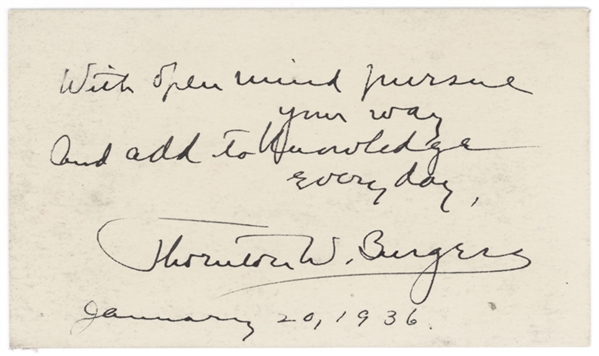 With open mind pursue
your way
And add to knowledge
every day,
Thornton W. Burgess
January 20, 1936.